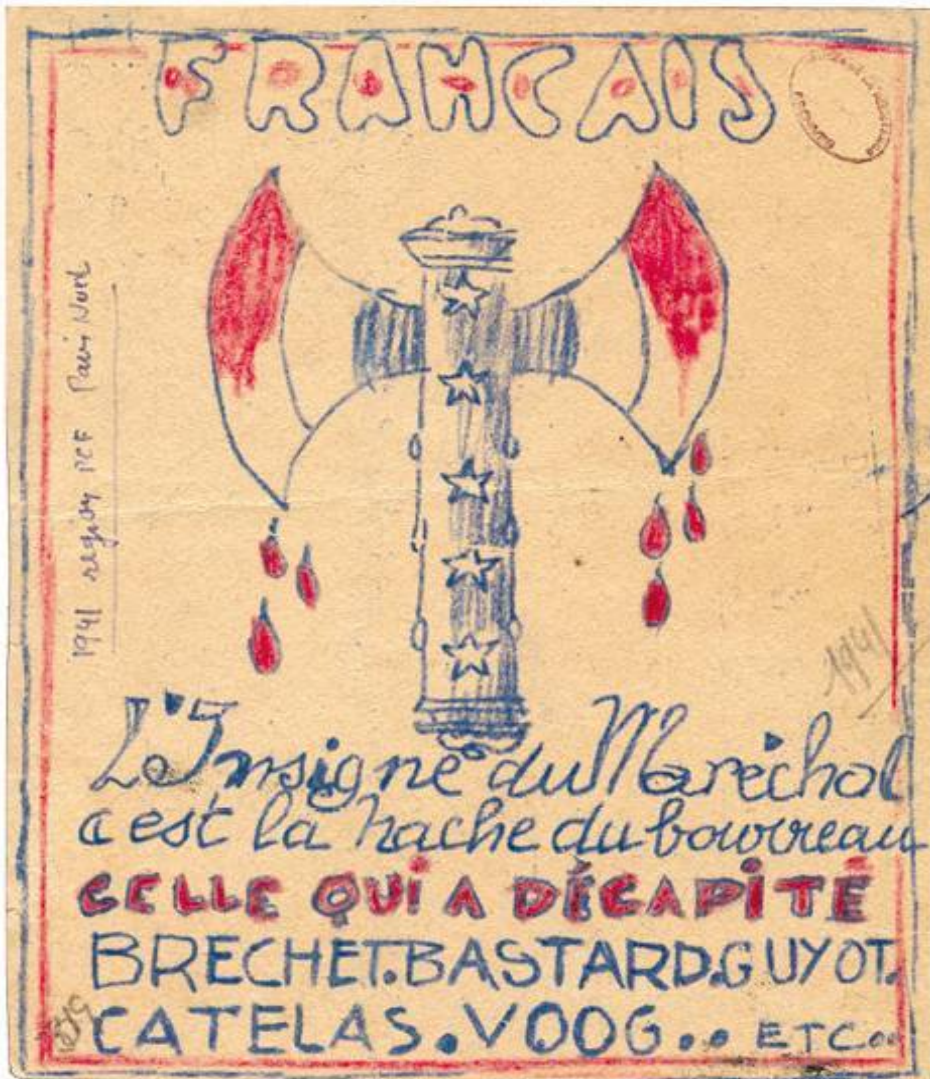 FRANCAIS
1941 region PCF Paris Nord
1941
L'Insigne du Maréchal
c'est la hache du bourreau
CELLE QUI A DÉCAPITÉ
BRECHET.BASTARD.GUYOT.
CATELAS.VOOG.. ETC..